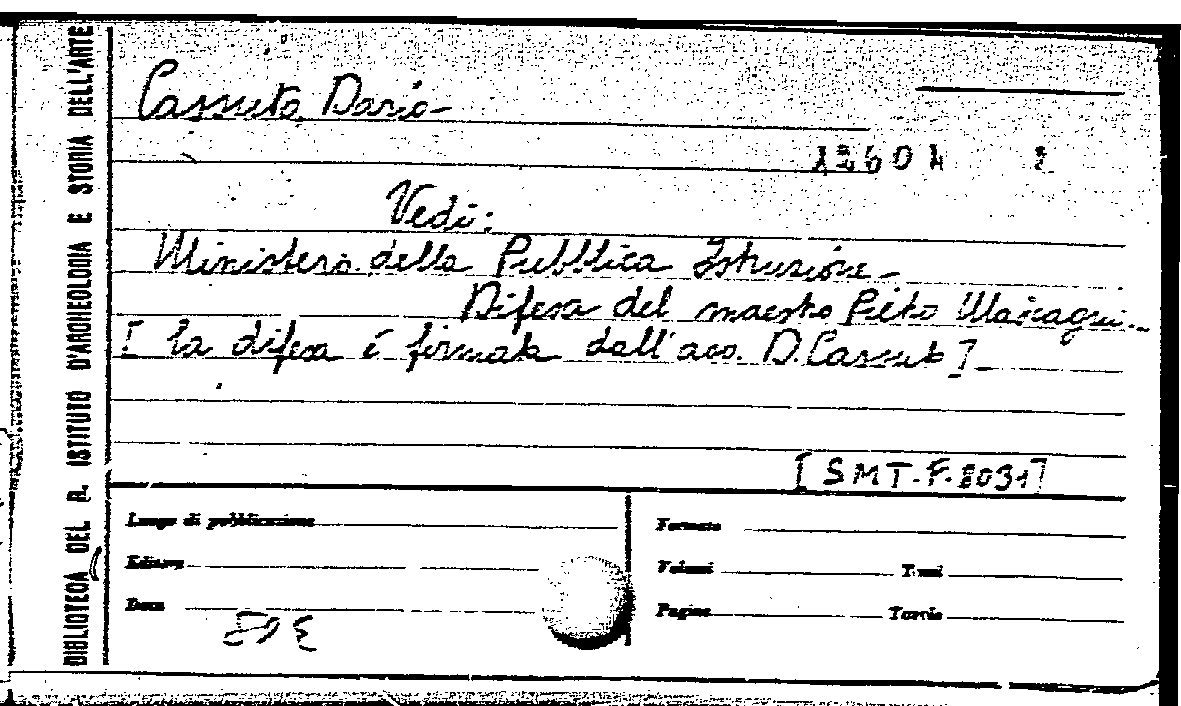 BIBLIOTECA DEL R. ISTITUTO D'ARCHEOLOGIA E STORIA DELL'ARTE
Cassuto Dario
Vedi:
Ministero della Pubblica Istruzione -
Difesa del maestro Pietro Mascagni...
[ la difesa è firmata dall'avv. D. Cassuto ] -
[ SMT. F. 803¹ ]
Luogo di pubblicazione
Formato
Editore
Volumi Tomi
Data
Pagine Tavole